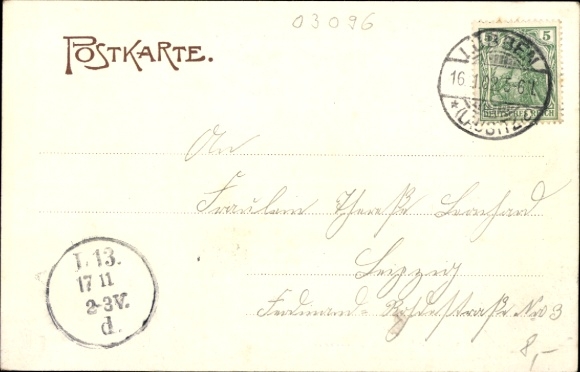 03096
POSTKARTE.
5
LÜBBEN
16
5-6N
* (LAUSITZ)
DEUTSCHES REICH
An
Fräulein Therese Leonhard
Leipzig
Ferdinand-Rhodestraße No 3
L 13.
17 11
2-3V.
d.
8,-